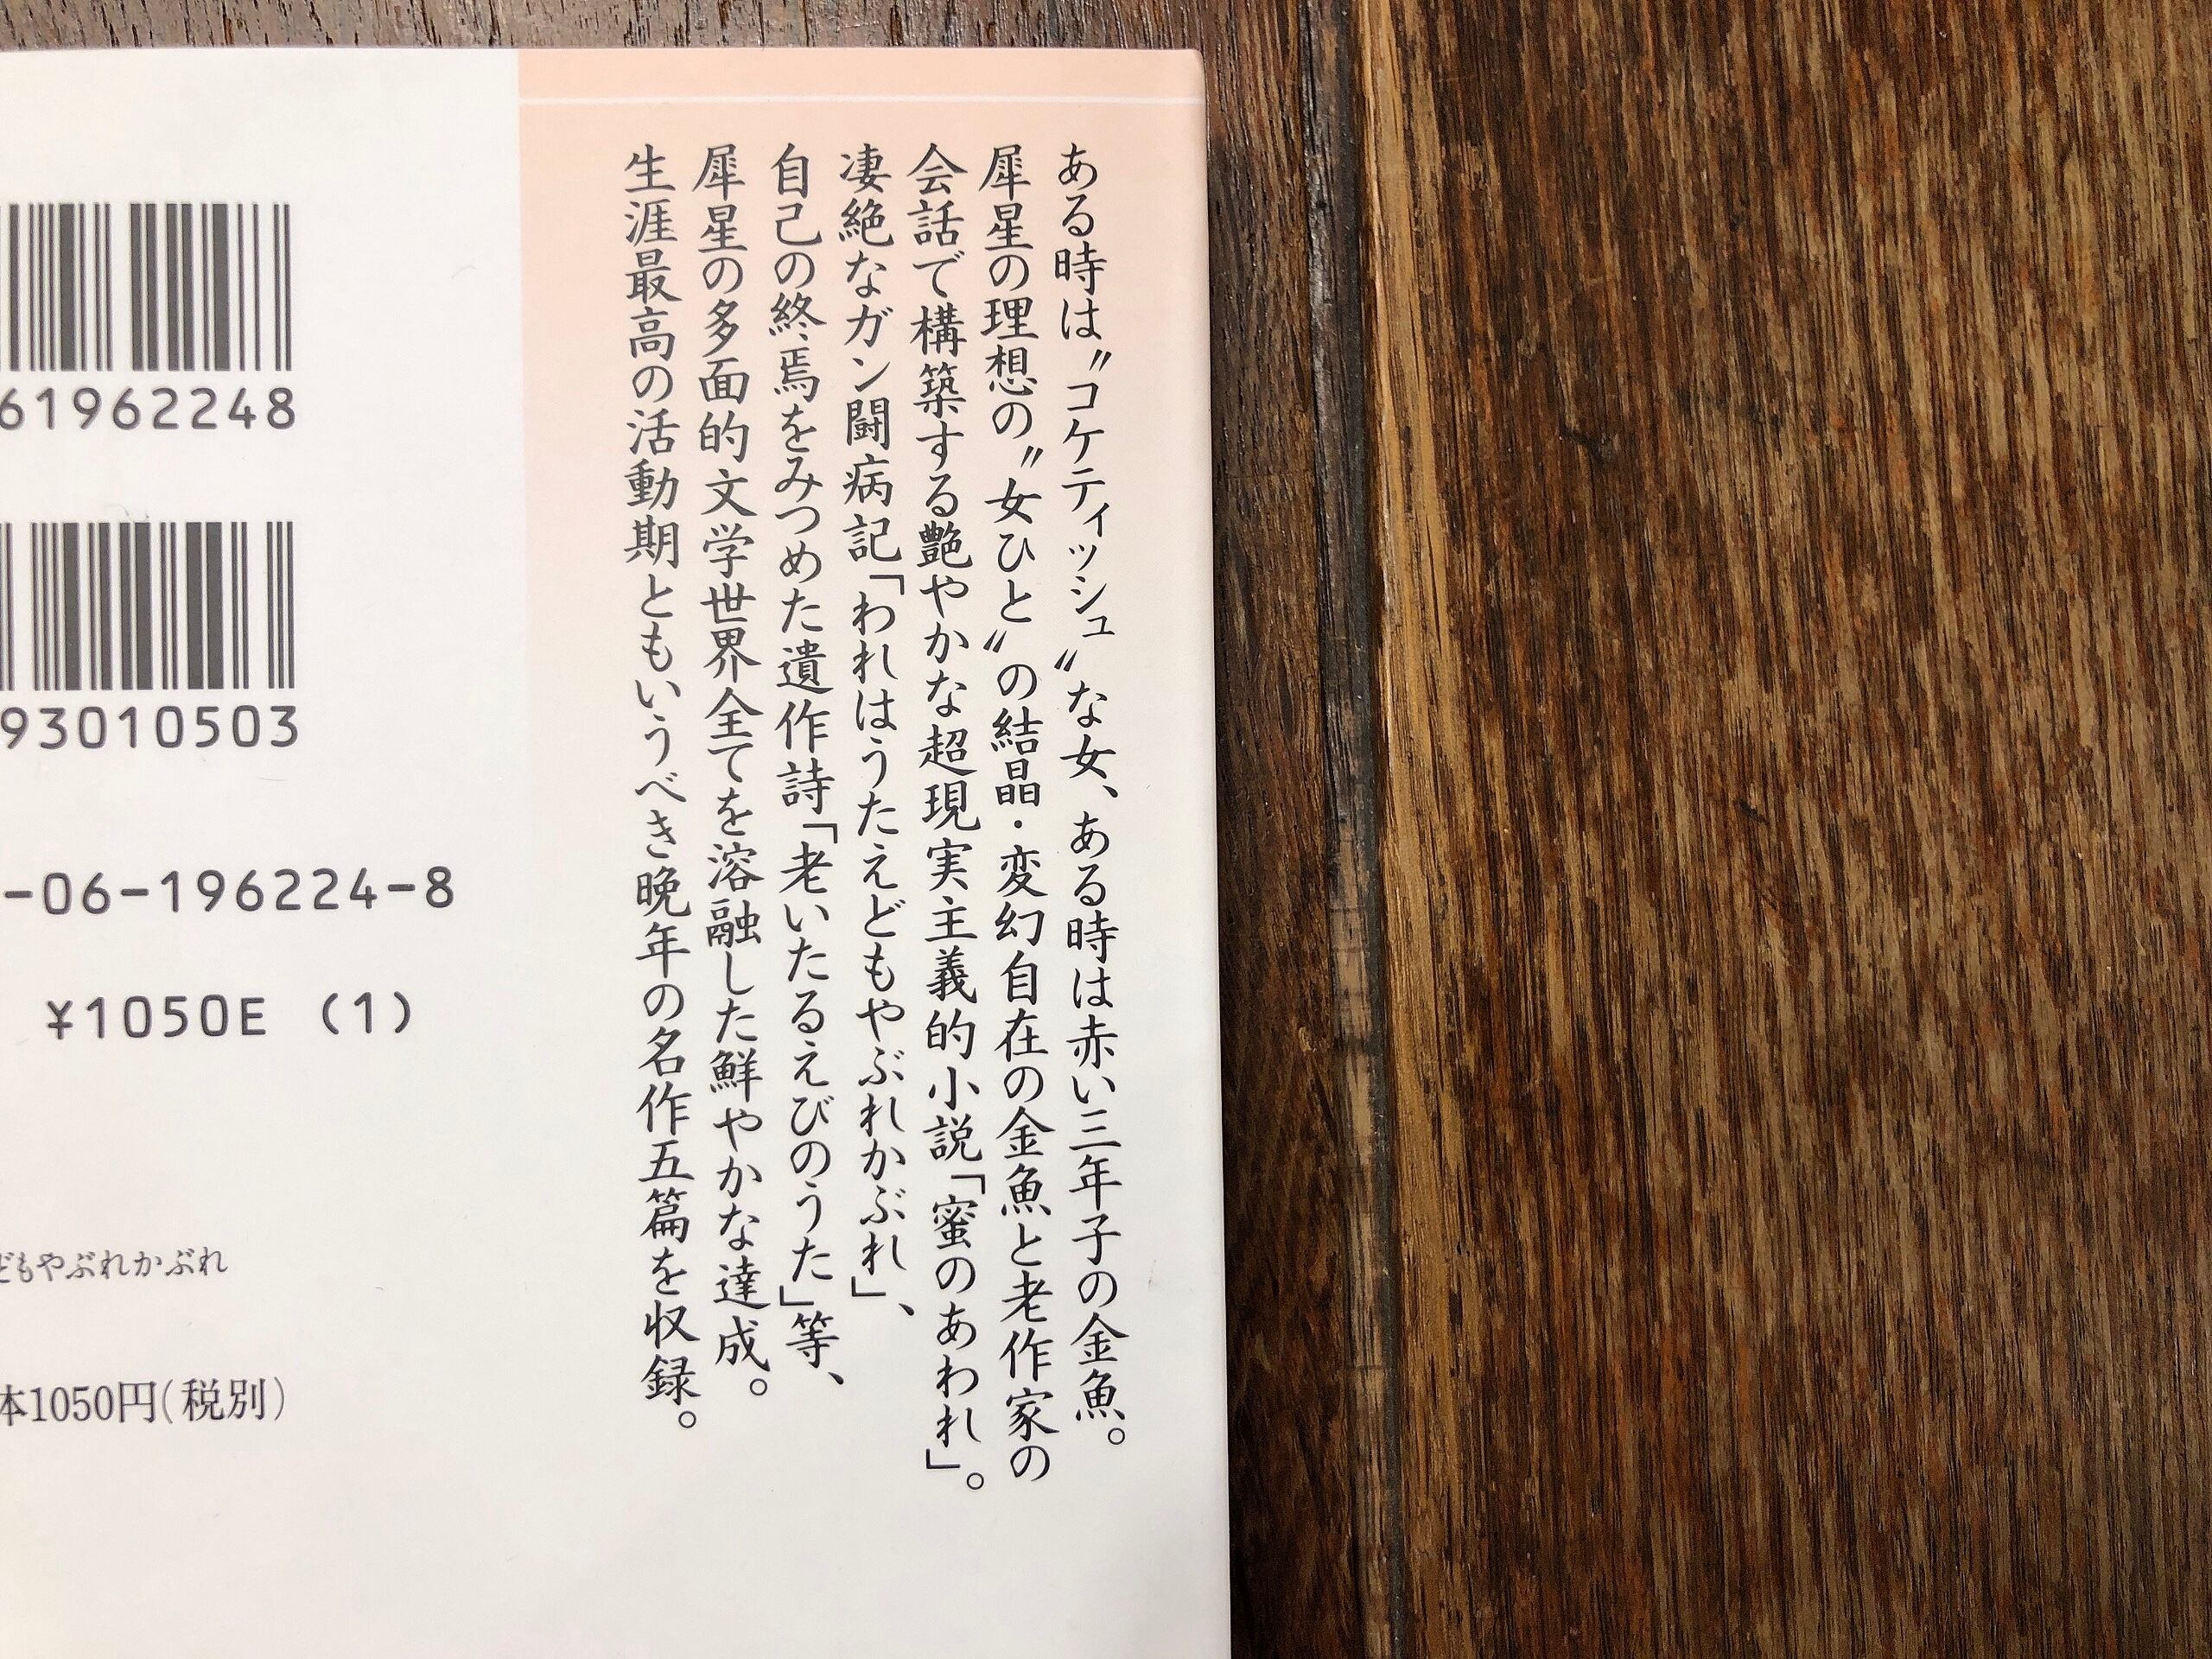 ある時は〝コケティッシュ〟な女、ある時は赤い三年子の金魚。
犀星の理想の〝女ひと〟の結晶・変幻自在の金魚と老作家の
会話で構築する艶やかな超現実主義的小説「蜜のあわれ」。
凄絶なガン闘病記「われはうたえどもやぶれかぶれ」、
自己の終焉をみつめた遺作詩「老いたるえびのうた」等、
犀星の多面的文学世界全てを溶融した鮮やかな達成。
生涯最高の活動期ともいうべき晩年の名作五篇を収録。
61962248
93010503
-06-196224-8
¥1050E (1)
どもやぶれかぶれ
本1050円(税別)